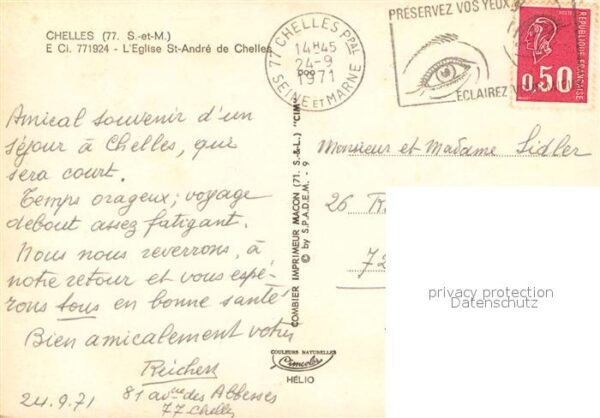 CHELLES (77. S.-et-M.)
E Ci. 771924 - L'Eglise St-André de Chelles
77 CHELLES Ppal
14H45
24-9
1971
SEINE ET MARNE
PRÉSERVEZ VOS YEUX
ÉCLAIREZ
POSTES
REPUBLIQUE FRANÇAISE
0,50
Amical souvenir d'un
séjour à Chelles, qui
sera court.
Temps orageux; voyage
debout assez fatigant.
Nous nous reverrons, à
notre retour et vous espé-
rons tous en bonne santé
Bien amicalement votre
Reichen
24.9.71
81 avnue des Abbesses
77 Chelles
COMBIER IMPRIMEUR MACON (71. S.-&-L.) "CIM"
© by S.P.A.D.E.M. - 9
Monsieur et Madame Sidler
26 R
72
COULEURS NATURELLES
Cimcolor
HÉLIO
privacy protection
Datenschutz